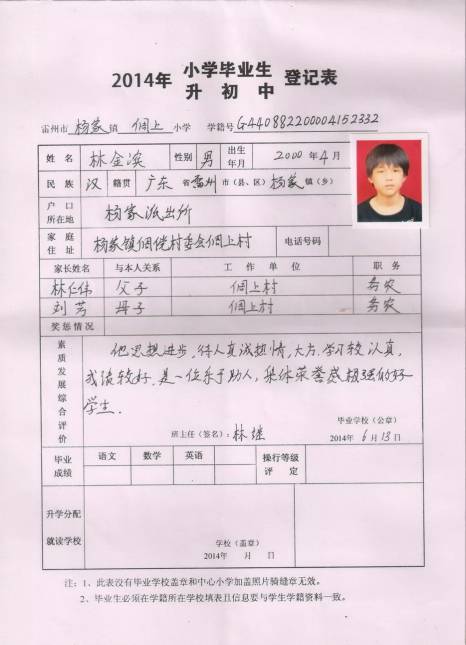 2014年 小学毕业生 登记表
升 初 中
雷州市 杨家 镇 侗上 小学 学籍号 G440882200004152332
姓 名 林金 性别 男 出生年月 2000 年 4 月
民 族 汉 籍贯 广东 省 雷州 市(县、区) 杨家 镇(乡)
户 口 所在地 杨家派出所
家 庭 住 址 杨家镇侗 村委会侗上村 电话号码
家长姓名 与本人关系 工 作 单 位 职 务
林仁伟 父子 侗上村 务农
刘芳 母子 侗上村 务农
奖惩情况
素质发展综合评价
他思想进步,待人真诚热情,大方.学习较认真,
成绩较好.是一位乐于助人,集体荣誉感 强的好
学生.
毕业学校(公章)
班主任(签名): 林继 2014年 6 月 13 日
毕业成绩 语文 数学 英语 操行等级评 定
升学分配
就读学校
学校(盖章)
2014年 月 日
注:1、此表没有毕业学校盖章和中心小学加盖照片骑缝章无效。
2、毕业生必须在学籍所在学校填表且信息要与学生学籍资料一致。